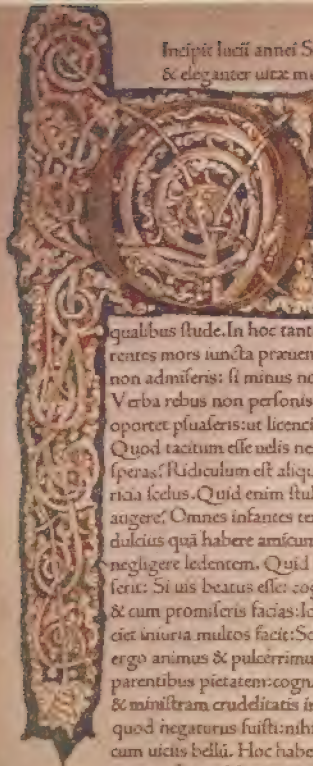 Incipit lucii annei S
& eleganter uitæ m
O
qualibus stude. In hoc tant
rentes mors iuncta præuen
non admiseris: si minus no
Verba rebus non personis
oportet psuaseris: ut licenci
Quod tacitum esse uelis ne
speras? Ridiculum est aliqu
ricia scelus. Quid enim stul
augere? Omnes infantes te
dulcius quã habere amicum
negligere ledentem. Quid
ferit: Si uis beatus esse: cog
& cum promiseris facias: Io
ciet iniuria multos facit: So
ergo animus & pulcerrimu
parentibus pietatem: cogna
& ministram crudelitatis i
quod negaturus fuisti: nihi
cum uicus bellũ. Hoc habe